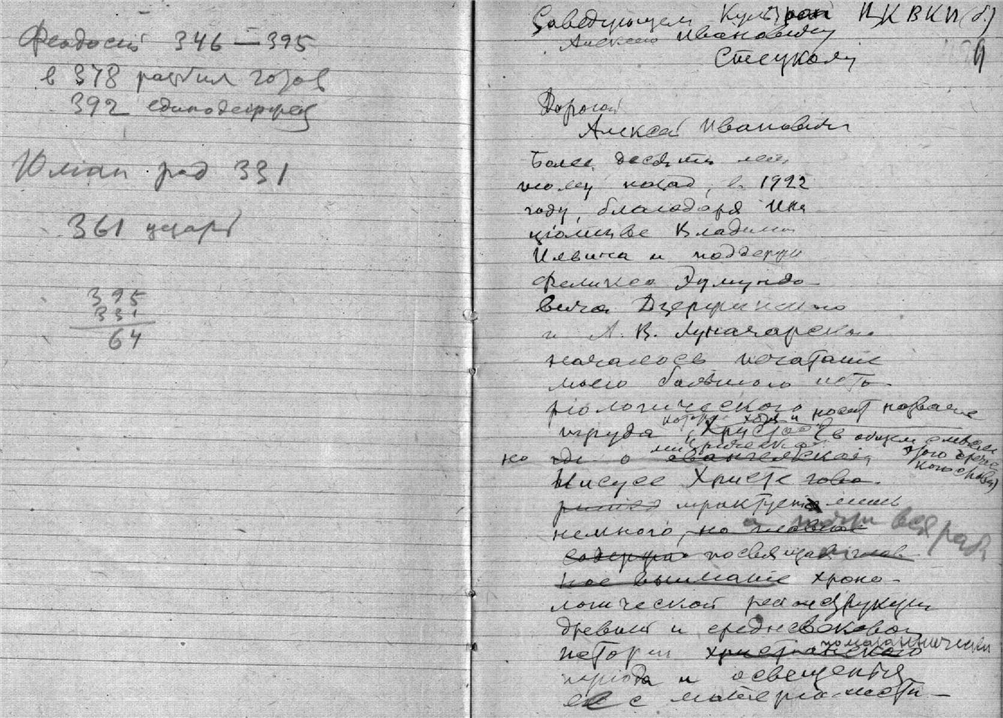 Феодосий 346—395
в 378 разбил готов
392 единодержец
Юлиан род 331
361 царь
395
331
64
Заведующему Культпроп ЦК ВКП(б)
Алексею Ивановичу
Стецкому
Дорогой
Алексей Иванович
Более десяти лет
тому назад, в 1922
году, благодаря Ини
циативе Владими
Ильича и поддерж
Феликса Эдмундо-
вича Дзержинского
и А. В. Луначарско
началось печатание
моего большого исто-
риологического
труда „Христос“
которые хотя и носят название
(в общем смысле
этого греческого слова)
но где о евангельском
мифическом
Иисусе Христе гово-
рится трактуется лишь
немного, но главное
а почти вся
содержа посвящает глав
ное внимание хроно-
логической реконструкции
древней и средневековой
истории христианского
периода и освещения
ее с материалисти-